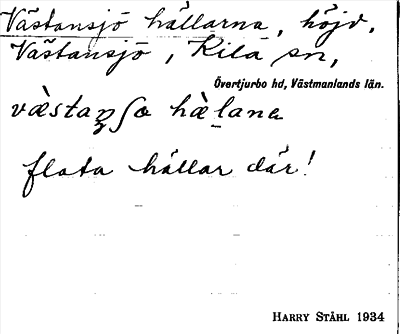 Västansjö hällarna, höjd,
Västansjö, Kila sn,
Övertjurbo hd, Västmanlands län.
væ̀staŋʃœ hæ̀lana
flata hällar där!
HARRY STÅHL 1934